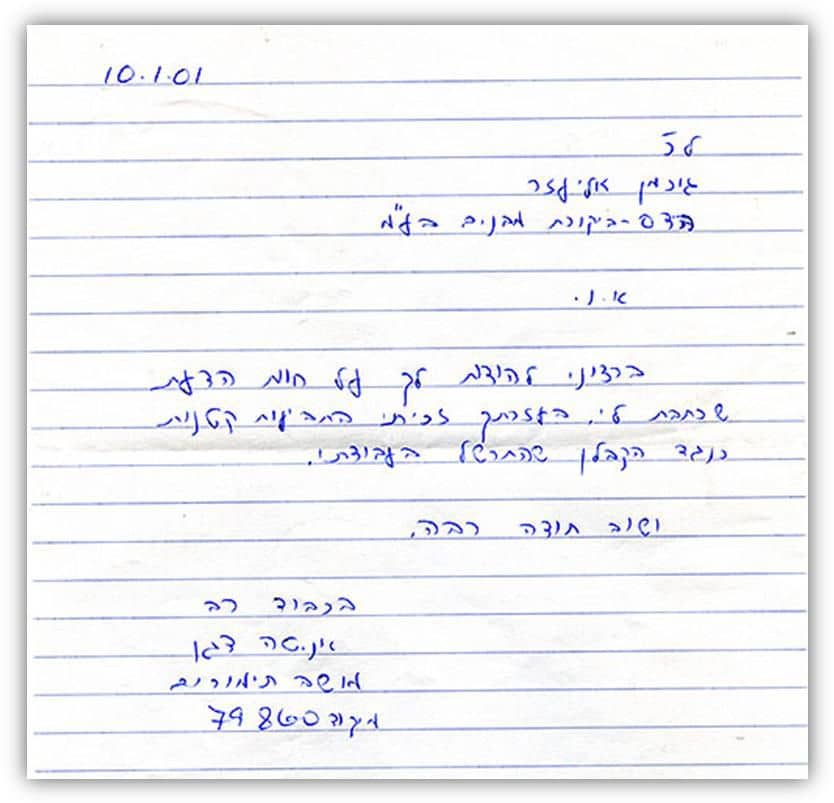 10.1.01
לכ'
גוכמן אליעזר
הדס-ביקורת מבנים בע"מ
א.נ.
ברצוני להודות לך על חוות הדעת
שכתבת לי. בעזרתך זכיתי בתביעות קטנות
כנגד הקבלן שהתרשל בעבודתו.
ושוב תודה רבה.
בכבוד רב
אניטה דגן
מושב תימורים
מיקוד 79860